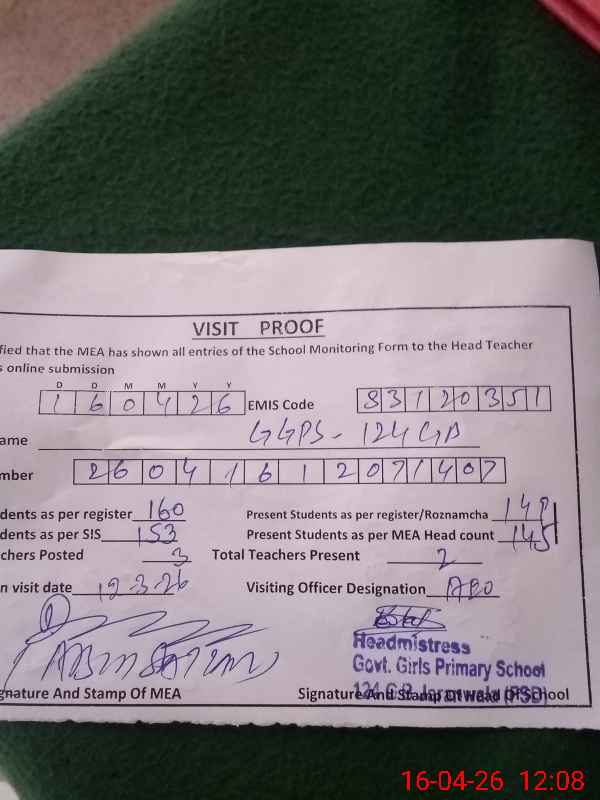 VISIT PROOF
fied that the MEA has shown all entries of the School Monitoring Form to the Head Teacher
s online submission
D D M M Y Y
160426 EMIS Code 33120351
ame GGPS - 124 GB
mber 26041612071407
dents as per register 160 Present Students as per register/Roznamcha
dents as per SIS 153 Present Students as per MEA Head count 145
chers Posted 3 Total Teachers Present 2
n visit date 12-3-26 Visiting Officer Designation AEO
Headmistress
Govt. Girls Primary School
gnature And Stamp Of MEA Signature And Stamp Of Head Of School
16-04-26 12:08